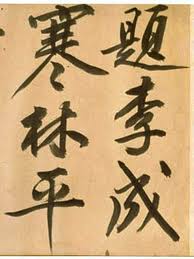 題李成
寒林平